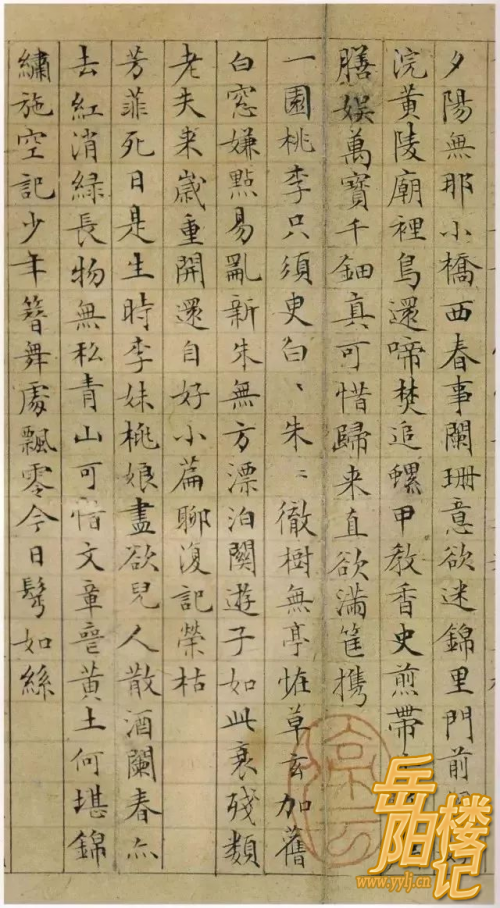 夕陽無那小橋西春事闌珊意欲迷錦里門前
浣黄陵廟裡鳥還啼焚追螺甲教香史煎帶
膳娱萬寶千鈿真可惜歸来直欲满筐携
一園桃李只須臾白丶朱丶徹樹無亭恠草玄加舊
白窓嫌點易亂新朱無方漂泊關遊子如此衰殘類
老夫来歲重開還自好小篇聊復記榮枯
芳菲死日是生時李妹桃娘盡欲兒人散酒闌春亦
去紅消緑長物無私青山可惜文章喪黄土何堪錦
繡施空記少年簪舞處飄零今日髩如絲
岳阳楼记
www.yylj.cn